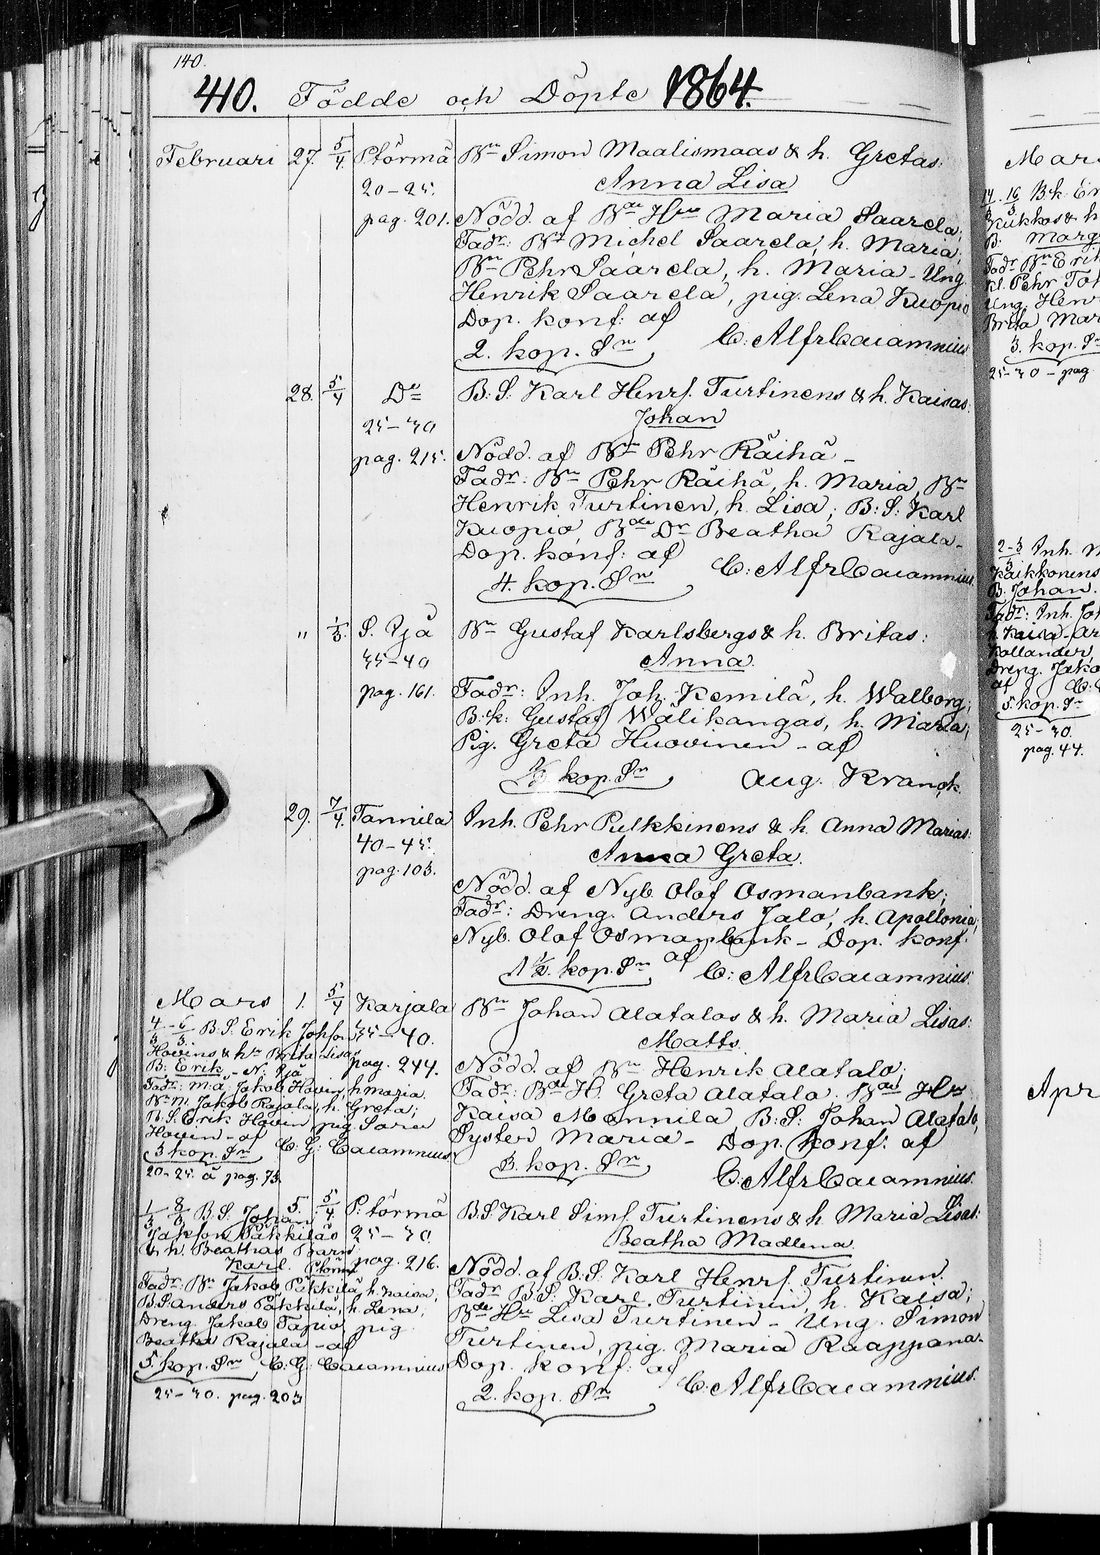 140.
410. Födde och Döpte 1864.
Februari 27. 5/4 P.törmä Bn Simon Maalismaas & h. Gretas:
20-25. Anna Lisa
pag. 201. Nödd. af Bde Hru Maria Saarela;
Fadr: Bn Michel Saarela, h. Maria;
Bn Pehr Saarela, h. Maria - Ung.
Henrik Saarela, pig. Lena Kuopio
Dop. konf: af
2. kop. Sr C: Alfr Cajamnius
28. 5/4 Do B: S: Karl Henrs. Turtinens & h. Kaisas:
25-30 Johan
pag. 215. Nödd. af Bn Pehr Räihä -
Fadr: Bn Pehr Räihä, h. Maria, Bn
Henrik Turtinen, h. Lisa; B: S: Karl
Kuopio, Bde Dr Beatha Rajala -
Dop. konf: af
4. kop. Sr C: Alfr Cajamnius
" 1/3. S. Ijå Bn Gustaf Karlsbergs & h. Britas:
35-40 Anna.
pag. 161. Fadr: Inh. Joh. Kemilä, h. Walborg;
B:k: Gustaf Wälikangas, h. Maria;
Pig. Greta Huovinen - af
kop. Sr Aug. Kranck.
29. 7/4. Tannila Inh. Pehr Pulkkinens & h. Anna Marias:
40-45. Anna Greta.
pag. 103. Nödd. af Nyb. Olof Osmanbank;
Fadr: Dreng. Anders Jalo, h. Apollonia;
Nyb. Olof Osmanbank - Dop. konf.
af
1 1/2. kop. Sr C: Alfr Cajamnius.
Mars 1. 5/4 Karjala Bn Johan Alatalos & h. Maria Lisas:
35-40. Matts.
pag. 244. Nödd. af Bn Henrik Alatalo;
Fadr: Bde H. Greta Alatalo. Bde Hr
Kaisa Mannila B: S: Johan Alatalo,
Syster Maria - Dop. konf: af
3. kop. Sr
C: Alfr Cajamnius.
4/3 - 6/3. B.S. Erik Johsson
Hovins & hu Brita Lisas
B: Erik - N. Ijå
Fadr: m.a: Jakob Hovin, h. Maria
Bn M. Jakob Rajala, h. Greta;
B. S. Erik Hoven, pig Sara
Hoven - af
3 kop. Sr C: G: Cajamnius
20-25. å pag. 73.
5. 5/4 P. törmä B.S. Karl Sims. Turtinens & h. Maria Lisas:
25-30. Beatha Madlena
pag. 216. Nödd. af B: S: Karl Henrs. Turtinen.
Fadr B: S: Karl Turtinen, h. Kaisa;
Bde Hru Lisa Turtinen - Ung. Simon
Turtinen, pig. Maria Raappana -
Dop. konf: af
2. kop. Sr C: Alfr Cajamnius.
1/3 8/3 B.S. Johan
Jakson Päkkiläs
& h. Beathas Barn
Karl. Ptörmä
Fadr: Bn Jakob Päkkilä, h. Kaisa,
B.S. Anders Päkkilä, h. Lena;
Dreng. Jakob Tapio, pig.
Beatha Rajala - af
5. kop. Sr C: G: Cajamnius
25-30. pag. 203
Mars
14. 16 B.k. Er
Kukkos & h
B: Marg
Fadr Bn Erik
kl. Pehr Toh
Ung. Henr
Brita Mar
3. kop. Sr
25-30 - pag
2-3 Inh. M
Kaikkonens
B: Johan.
Fadr: Inh. Joh
h. Kaisa - Ar
Kollander,
Dreng. Jako
af C: G
5. kop. Sr
25-30.
pag. 44.
Apr